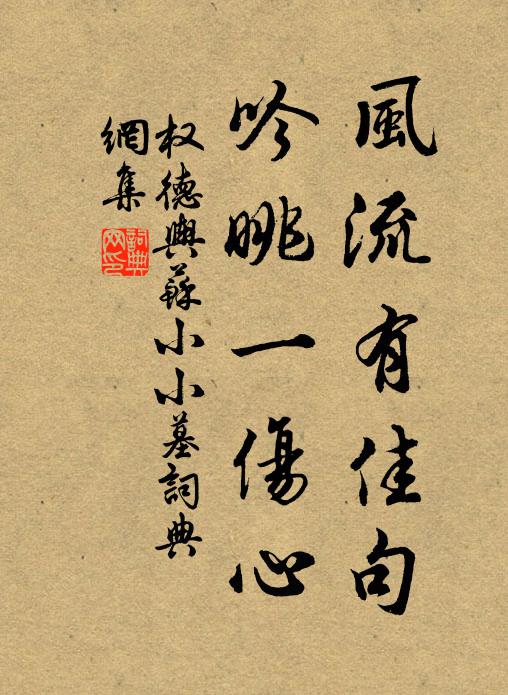 風流有佳句
吟眺一傷心
权德輿蘇小小墓詞典
網集
詞典網印